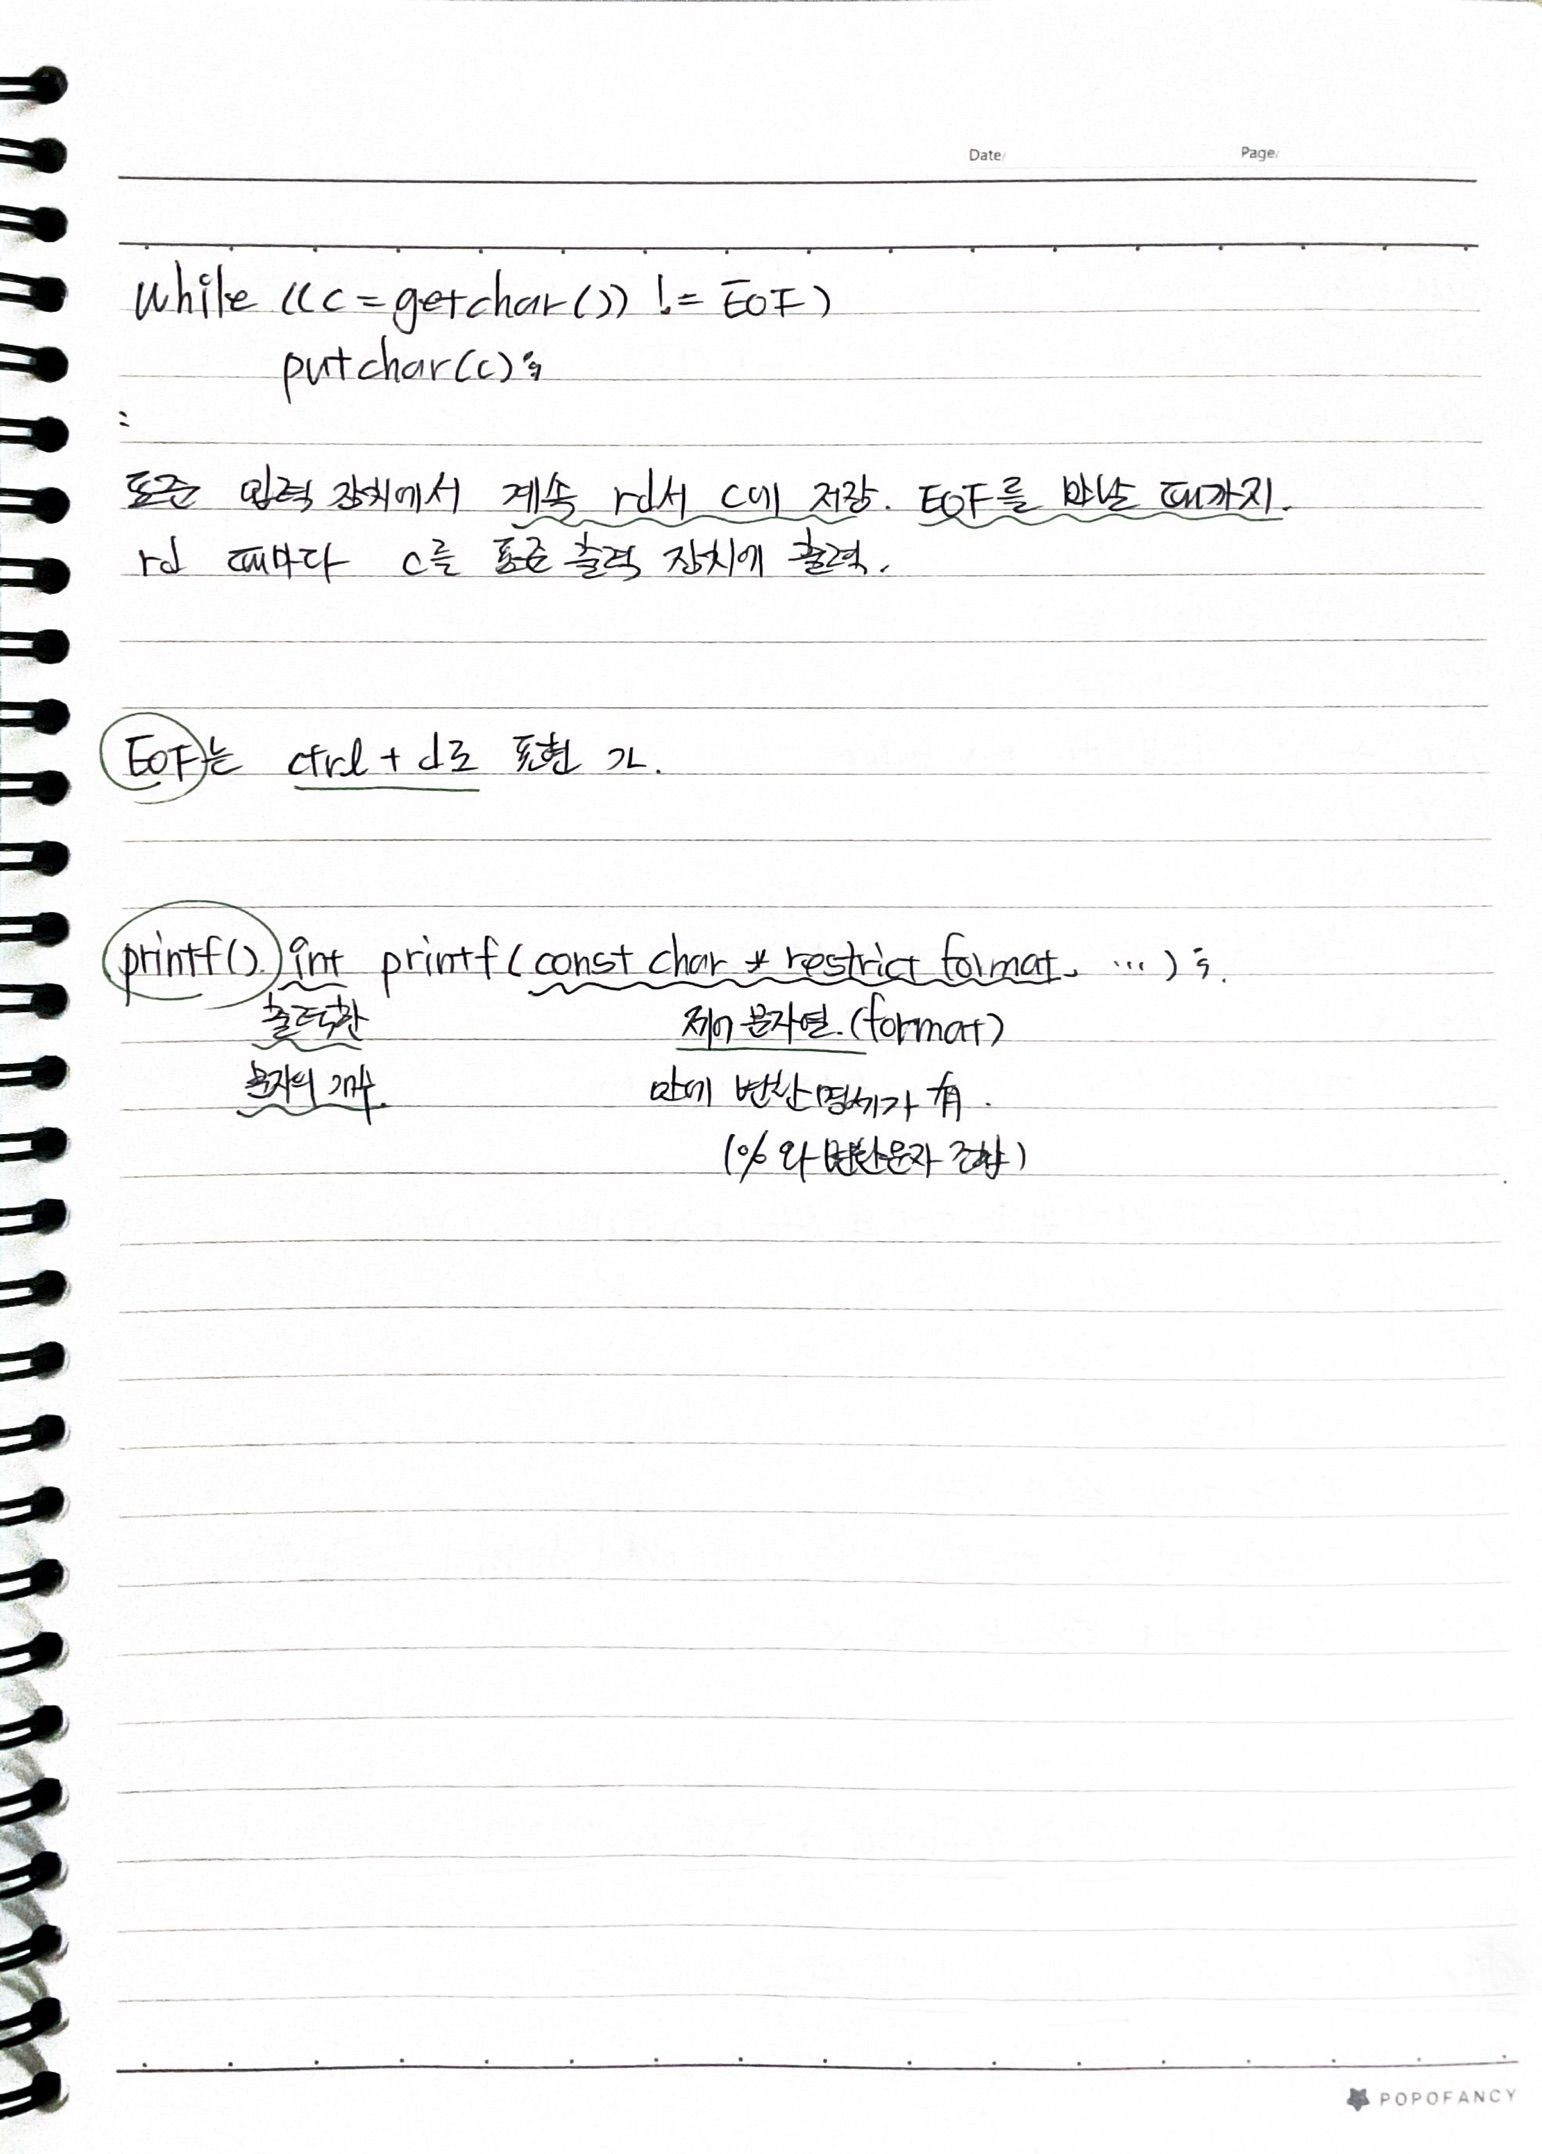 Date/ Page/
while ((c = getchar()) != EOF)
putchar(c);
:
표준 입력 장치에서 계속 rd서 c에 저장. EOF를 만날 때까지.
rd 때마다 c를 표준 출력 장치에 출력.
EOF는 ctrl + d로 표현 가.
printf(). int printf(const char * restrict format, ...);
출력한 제어 문자열. (format)
문자의 개수. 안에 변환 명세가 有.
(%와 변환문자 조합)
POPOFANCY